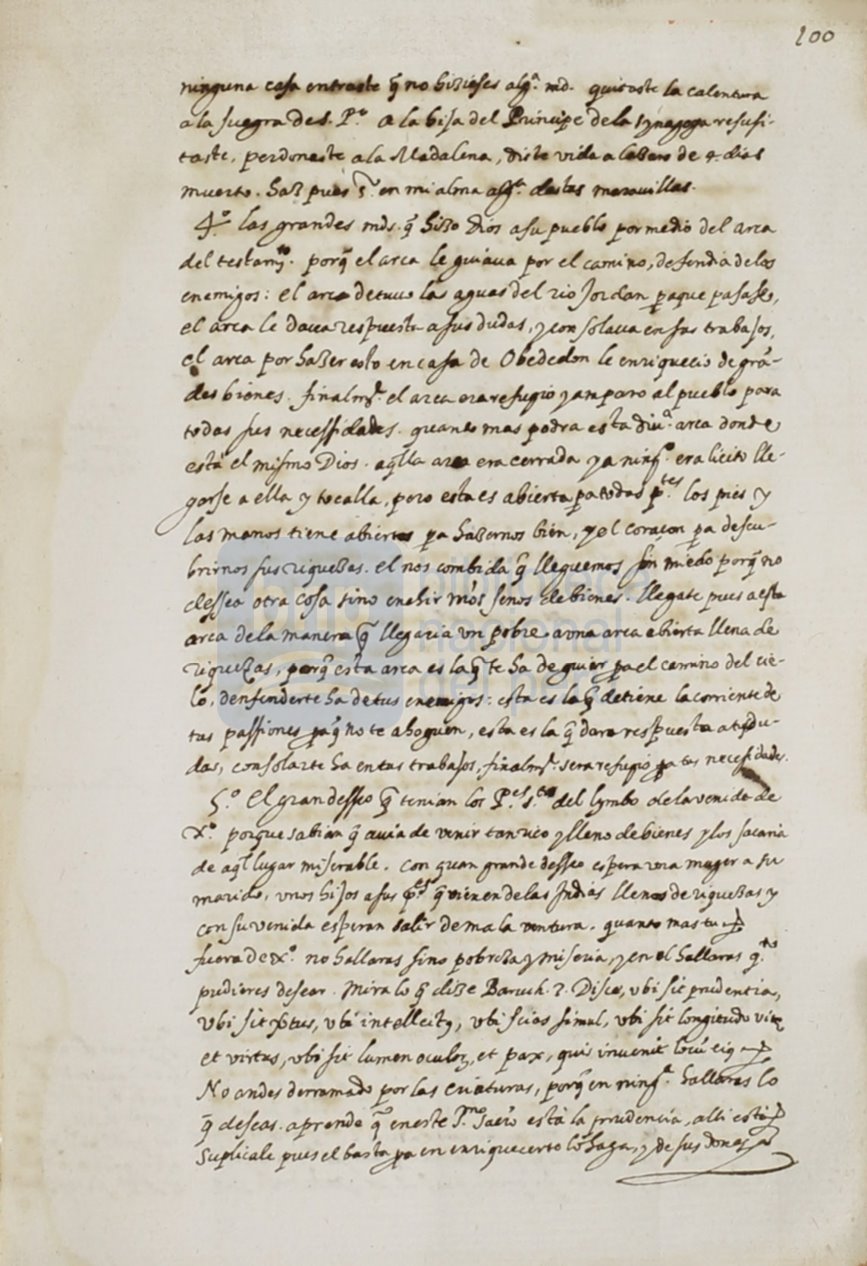 100
ninguna casa entraste q̃ no hiziesses algª. md. quitaste la calentura
a la suegra de s. Pº. a la hija del Principe de la synagoga resusi-
taste, perdonaste a la Madalena, diste vida a lazaro de 4. dias
muerto. haz pues sʳ. en mi alma algª. destas maravillas.
4º. las grandes mds. q̃ hizo Dios a su pueblo por medio del arca
del testamᵗᵒ. porq̃ el arca le guiaua por el camino, defendia de los
enemigos: el arca detuuo las aguas del rio Jordan paque pasasse,
el arca le daua respuesta a sus dudas, y consolaua en sus trabajos,
el arca por hazer esto en casa de Obededon le enriquecio de grã-
des bienes. finalmᵗᵉ. el arca era refugio y amparo al pueblo para
todas sus necessidades. quanto mas podra esta diuª. arca donde
està el mismo Dios. aq̃lla arca era cerrada y a ningº. era licito lle-
garse a ella y tocalla, pero esta es abierta pa todas pᵗᵉˢ. los pies y
las manos tiene abiertas pa hazernos bien, y el coraçon pa descu-
brirnos sus riquezas. el nos combida q̃ lleguemos sin miedo porq̃ no
dessea otra cosa sino enchir nr̃os senos de bienes. llegate pues a esta
arca de la manera q̃ llegaria vn pobre a vna arca abierta llena de
riquezas, porq̃ esta arca es la q̃ te ha de guiar pa el camino del cie-
lo, denfenderte ha de tus enemigos: esta es la q̃ detiene la corriente de
tus passiones paq̃ no te ahoguen, esta es la q̃ dara respuesta a tus du-
das, consolarte ha en tus trabajos, finalmᵗᵉ. sera refugio pa tus necessidades.
5º. El gran desseo q̃ tenian los Pᵉˢ. sᵗᵒˢ del lymbo de la venida de
Xº. porque sabian q̃ auia de venir tan rico y lleno de bienes y los sacaria
de aq̃l lugar miserable. con quan grande desseo espera vna muger a su
marido, vnos hijos a sus pᵉˢ q̃ vienen de las Indias llenos de riquezas y
con su venida esperan salir de mala ventura. quanto mas tu
fuera de xº. no hallaras sino pobreza y miseria, y en el hallaras qᵗᵒ
pudieres desear. Mira lo q̃ dize Baruch. 3. Disce, vbi sit prudentia,
vbi sit virtus, vbi intellectꝰ, vt scias simul, vbi sit longitudo vitę
et virtus, vbi sit lumen oculoꝝ, et pax, quis inuenit locũ eiꝰ
No andes derramado por las criaturas, porq̃ en ningª. hallaras lo
q̃ deseas. aprende q̃ en este sᵐᵒ sacrº està la prudencia, alli està
suplicale pues el basta pa en enriquecerte lo haga, y de sus dones